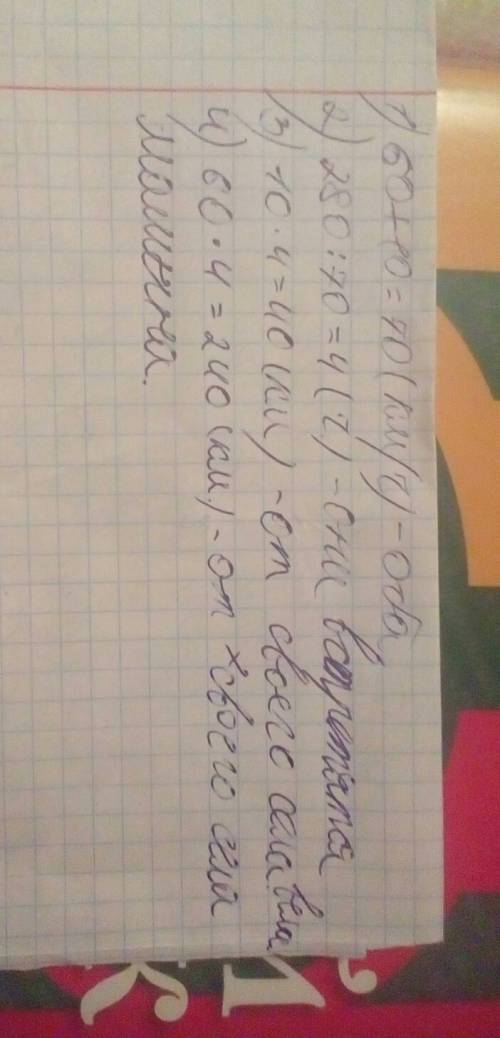 1) 60+10=70 (км/ч) - оба
2) 280:70=4 (ч) - они встретятся
3) 10·4=40 (км) - от своего села вел
4) 60·4=240 (км) - от своего села
машина.